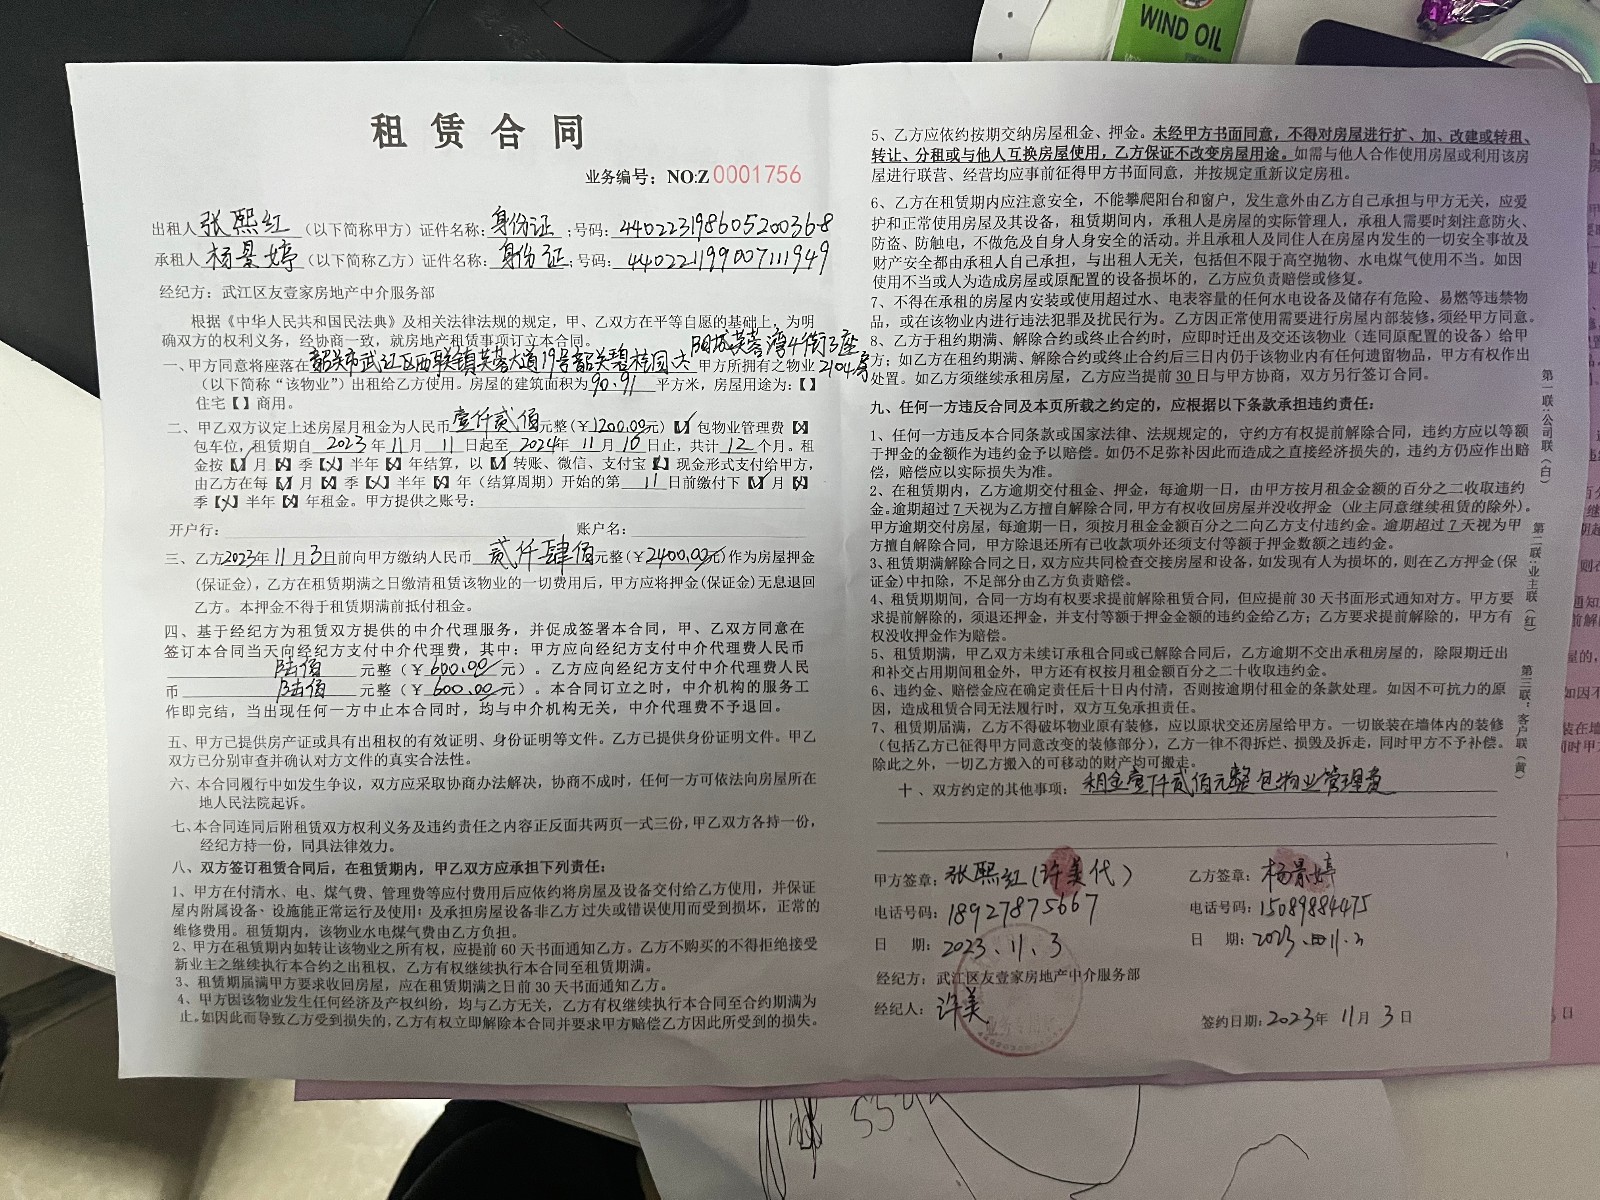 WIND OIL
租赁合同
业务编号：NO:Z 0001756
出租人 张熙红 （以下简称甲方）证件名称：身份证；号码：440223198605200368
承租人 杨景婷（以下简称乙方）证件名称：身份证；号码：440221199007111949
经纪方：武江区友壹家房地产中介服务部
根据《中华人民共和国民法典》及相关法律法规的规定，甲、乙双方在平等自愿的基础上，为明
确双方的权利义务，经协商一致，就房地产租赁事项订立本合同。
阳光芙蓉湾4街3座
一、甲方同意将座落在 韶关市武江区西联镇芙蓉大道19号韶关碧桂园 甲方所拥有之物业 2104房
（以下简称“该物业”）出租给乙方使用。房屋的建筑面积为 90.91 平方米，房屋用途为：【】
住宅【】商用。
二、甲乙双方议定上述房屋月租金为人民币 壹仟贰佰 元整（￥1200.00元）【✓】包物业管理费【×】
包车位，租赁期自 2023 年 11 月 11 日起至 2024年 11 月 10 日止，共计 12 个月。租
金按【✓】月【×】季【×】半年【×】年结算，以【✓】转账、微信、支付宝【】现金形式支付给甲方，
由乙方在每【✓】月【×】季【×】半年【×】年（结算周期）开始的第 11 日前缴付下【✓】月【×】
季【×】半年【×】年租金。甲方提供之账号：
开户行： 账户名：
三、乙方2023年 11 月 3 日前向甲方缴纳人民币 贰仟肆佰 元整（￥2400.00元）作为房屋押金
（保证金），乙方在租赁期满之日缴清租赁该物业的一切费用后，甲方应将押金(保证金)无息退回
乙方。本押金不得于租赁期满前抵付租金。
四、基于经纪方为租赁双方提供的中介代理服务，并促成签署本合同，甲、乙双方同意在
签订本合同当天向经纪方支付中介代理费，其中：甲方应向经纪方支付中介代理费人民币
陆佰 元整（￥600.00元）。乙方应向经纪方支付中介代理费人民
币 陆佰 元整（￥600.00元）。本合同订立之时，中介机构的服务工
作即完结，当出现任何一方中止本合同时，均与中介机构无关，中介代理费不予退回。
五、甲方已提供房产证或具有出租权的有效证明、身份证明等文件。乙方已提供身份证明文件。甲乙
双方已分别审查并确认对方文件的真实合法性。
六、本合同履行中如发生争议，双方应采取协商办法解决，协商不成时，任何一方可依法向房屋所在
地人民法院起诉。
七、本合同连同后附租赁双方权利义务及违约责任之内容正反面共两页一式三份，甲乙双方各持一份，
经纪方持一份，同具法律效力。
八、双方签订租赁合同后，在租赁期内，甲乙双方应承担下列责任：
1、甲方在付清水、电、煤气费、管理费等应付费用后应依约将房屋及设备交付给乙方使用，并保证
屋内附属设备、设施能正常运行及使用；及承担房屋设备非乙方过失或错误使用而受到损坏，正常的
维修费用。租赁期内，该物业水电煤气费由乙方负担。
2、甲方在租赁期内如转让该物业之所有权，应提前 60 天书面通知乙方。乙方不购买的不得拒绝接受
新业主之继续执行本合约之出租权，乙方有权继续执行本合同至租赁期满。
3、租赁期届满甲方要求收回房屋，应在租赁期满之日前 30 天书面通知乙方。
4、甲方因该物业发生任何经济及产权纠纷，均与乙方无关，乙方有权继续执行本合同至合约期满为
止。如因此而导致乙方受到损失的，乙方有权立即解除本合同并要求甲方赔偿乙方因此所受到的损失。
5、乙方应依约按期交纳房屋租金、押金。未经甲方书面同意，不得对房屋进行扩、加、改建或转租、
转让、分租或与他人互换房屋使用，乙方保证不改变房屋用途。如需与他人合作使用房屋或利用该房
屋进行联营、经营均应事前征得甲方书面同意，并按规定重新议定房租。
6、乙方在租赁期内应注意安全，不能攀爬阳台和窗户，发生意外由乙方自己承担与甲方无关，应爱
护和正常使用房屋及其设备，租赁期间内，承租人是房屋的实际管理人，承租人需要时刻注意防火、
防盗、防触电，不做危及自身人身安全的活动。并且承租人及同住人在房屋内发生的一切安全事故及
财产安全都由承租人自己承担，与出租人无关，包括但不限于高空抛物、水电煤气使用不当。如因
使用不当或人为造成房屋或原配置的设备损坏的，乙方应负责赔偿或修复。
7、不得在承租的房屋内安装或使用超过水、电表容量的任何水电设备及储存有危险、易燃等违禁物
品，或在该物业内进行违法犯罪及扰民行为。乙方因正常使用需要进行房屋内部装修，须经甲方同意。
8、乙方于租约期满、解除合约或终止合约时，应即时迁出及交还该物业（连同原配置的设备）给甲
方；如乙方在租约期满、解除合约或终止合约后三日内仍于该物业内有任何遗留物品，甲方有权作出
处置。如乙方须继续承租房屋，乙方应当提前 30 日与甲方协商，双方另行签订合同。
九、任何一方违反合同及本页所载之约定的，应根据以下条款承担违约责任：
1、任何一方违反本合同条款或国家法律、法规规定的，守约方有权提前解除合同，违约方应以等额
于押金的金额作为违约金予以赔偿。如仍不足弥补因此而造成之直接经济损失的，违约方仍应作出赔
偿，赔偿应以实际损失为准。
2、在租赁期内，乙方逾期交付租金、押金，每逾期一日，由甲方按月租金金额的百分之二收取违约
金。逾期超过 7 天视为乙方擅自解除合同，甲方有权收回房屋并没收押金（业主同意继续租赁的除外）。
甲方逾期交付房屋，每逾期一日，须按月租金金额百分之二向乙方支付违约金。逾期超过 7 天视为甲
方擅自解除合同，甲方除退还所有已收款项外还须支付等额于押金数额之违约金。
3、租赁期满解除合同之日，双方应共同检查交接房屋和设备，如发现有人为损坏的，则在乙方押金(保
证金)中扣除，不足部分由乙方负责赔偿。
4、租赁期期间，合同一方均有权要求提前解除租赁合同，但应提前 30 天书面形式通知对方。甲方要
求提前解除的，须退还押金，并支付等额于押金金额的违约金给乙方；乙方要求提前解除的，甲方有
权没收押金作为赔偿。
5、租赁期满，甲乙双方未续订承租合同或已解除合同后，乙方逾期不交出承租房屋的，除限期迁出
和补交占用期间租金外，甲方还有权按月租金额百分之二十收取违约金。
6、违约金、赔偿金应在确定责任后十日内付清，否则按逾期付租金的条款处理。如因不可抗力的原
因，造成租赁合同无法履行时，双方互免承担责任。
7、租赁期届满，乙方不得破坏物业原有装修，应以原状交还房屋给甲方。一切嵌装在墙体内的装修
（包括乙方已征得甲方同意改变的装修部分），乙方一律不得拆烂、损毁及拆走，同时甲方不予补偿。
除此之外，一切乙方搬入的可移动的财产均可搬走。
十、双方约定的其他事项：租金壹仟贰佰元整包物业管理费
甲方签章：张熙红（许美代） 乙方签章：杨景婷
电话号码：18927875667 电话号码：15089884475
日 期：2023.11.3 日 期：2023.11.3
经纪方：武江区友壹家房地产中介服务部
经纪人：许美
签约日期：2023年 11月 3 日
第一联：公司联（白）
第二联：业主联（红）
第三联：客户联（黄）